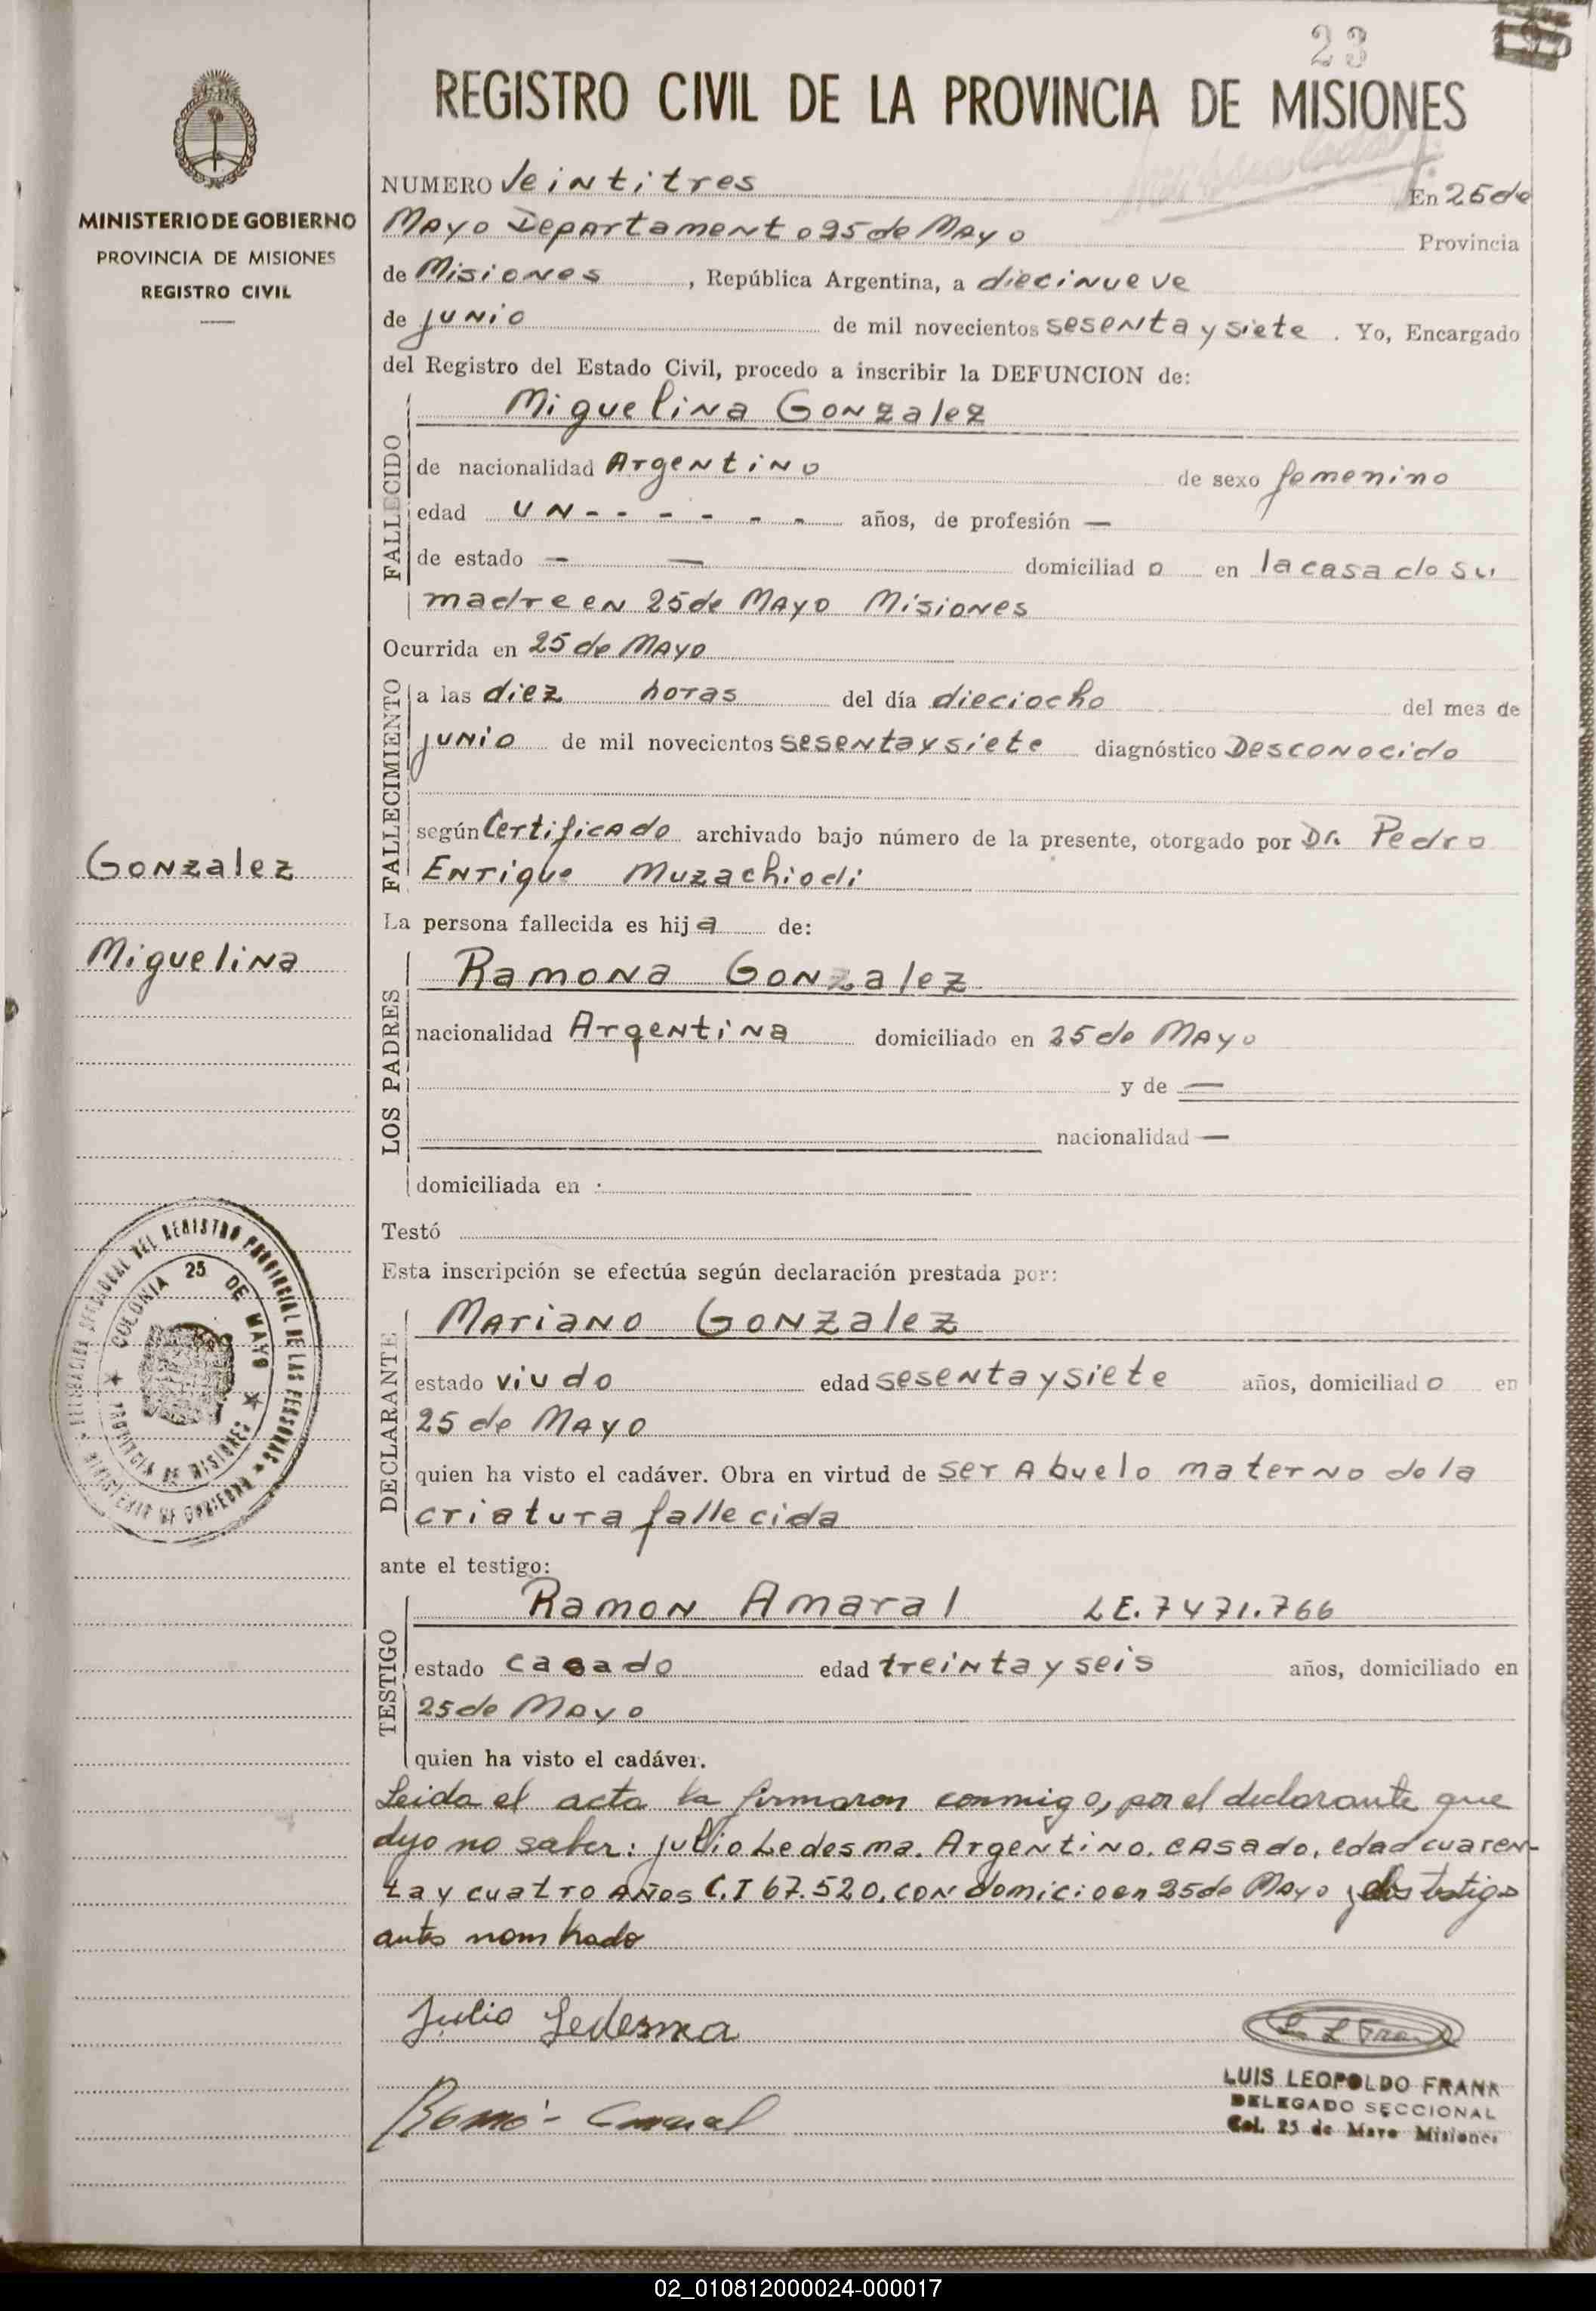 23
REGISTRO CIVIL DE LA PROVINCIA DE MISIONES
MINISTERIO DE GOBIERNO
PROVINCIA DE MISIONES
REGISTRO CIVIL
NUMERO Veintitres En 25 de
Mayo Departamento 25 de Mayo Provincia
de Misiones, República Argentina, a diecinueve
de junio de mil novecientos sesenta y siete. Yo, Encargado
del Registro del Estado Civil, procedo a inscribir la DEFUNCION de:
FALLECIDO
Miguelina Gonzalez
de nacionalidad Argentino de sexo femenino
edad UN - - - - - - años, de profesión —
de estado — — domiciliado en la casa de su
madre en 25 de Mayo Misiones
Ocurrida en 25 de Mayo
FALLECIMIENTO
a las diez horas del día dieciocho del mes de
junio de mil novecientos sesenta y siete diagnóstico Desconocido
según Certificado archivado bajo número de la presente, otorgado por Dr. Pedro
Enrique Muzachiodi
Gonzalez
Miguelina
La persona fallecida es hija de:
LOS PADRES
Ramona Gonzalez
nacionalidad Argentina domiciliado en 25 de Mayo
y de —
nacionalidad —
domiciliada en
Testó
Esta inscripción se efectúa según declaración prestada por:
DECLARANTE
Mariano Gonzalez
estado viudo edad sesenta y siete años, domiciliado en
25 de Mayo
quien ha visto el cadáver. Obra en virtud de ser Abuelo materno de la
criatura fallecida
DELEGACION SECCIONAL DEL REGISTRO PROVINCIAL DE LAS PERSONAS
MINISTERIO DE GOBIERNO
COLONIA 25 DE MAYO
PROVINCIA DE MISIONES
ante el testigo:
TESTIGO
Ramon Amaral L.E. 7471.766
estado casado edad treinta y seis años, domiciliado en
25 de Mayo
quien ha visto el cadáver.
Leida el acta la firmaron conmigo, por el declarante que
dijo no saber: julio Ledesma. Argentino. casado, edad cuaren-
ta y cuatro Años C.I 67.520, con domicio en 25 de Mayo testigo
antes nombrado
Julio Ledesma
L L Frank
LUIS LEOPOLDO FRANK
DELEGADO SECCIONAL
Col. 25 de Mayo Misiones
02_010812000024-000017